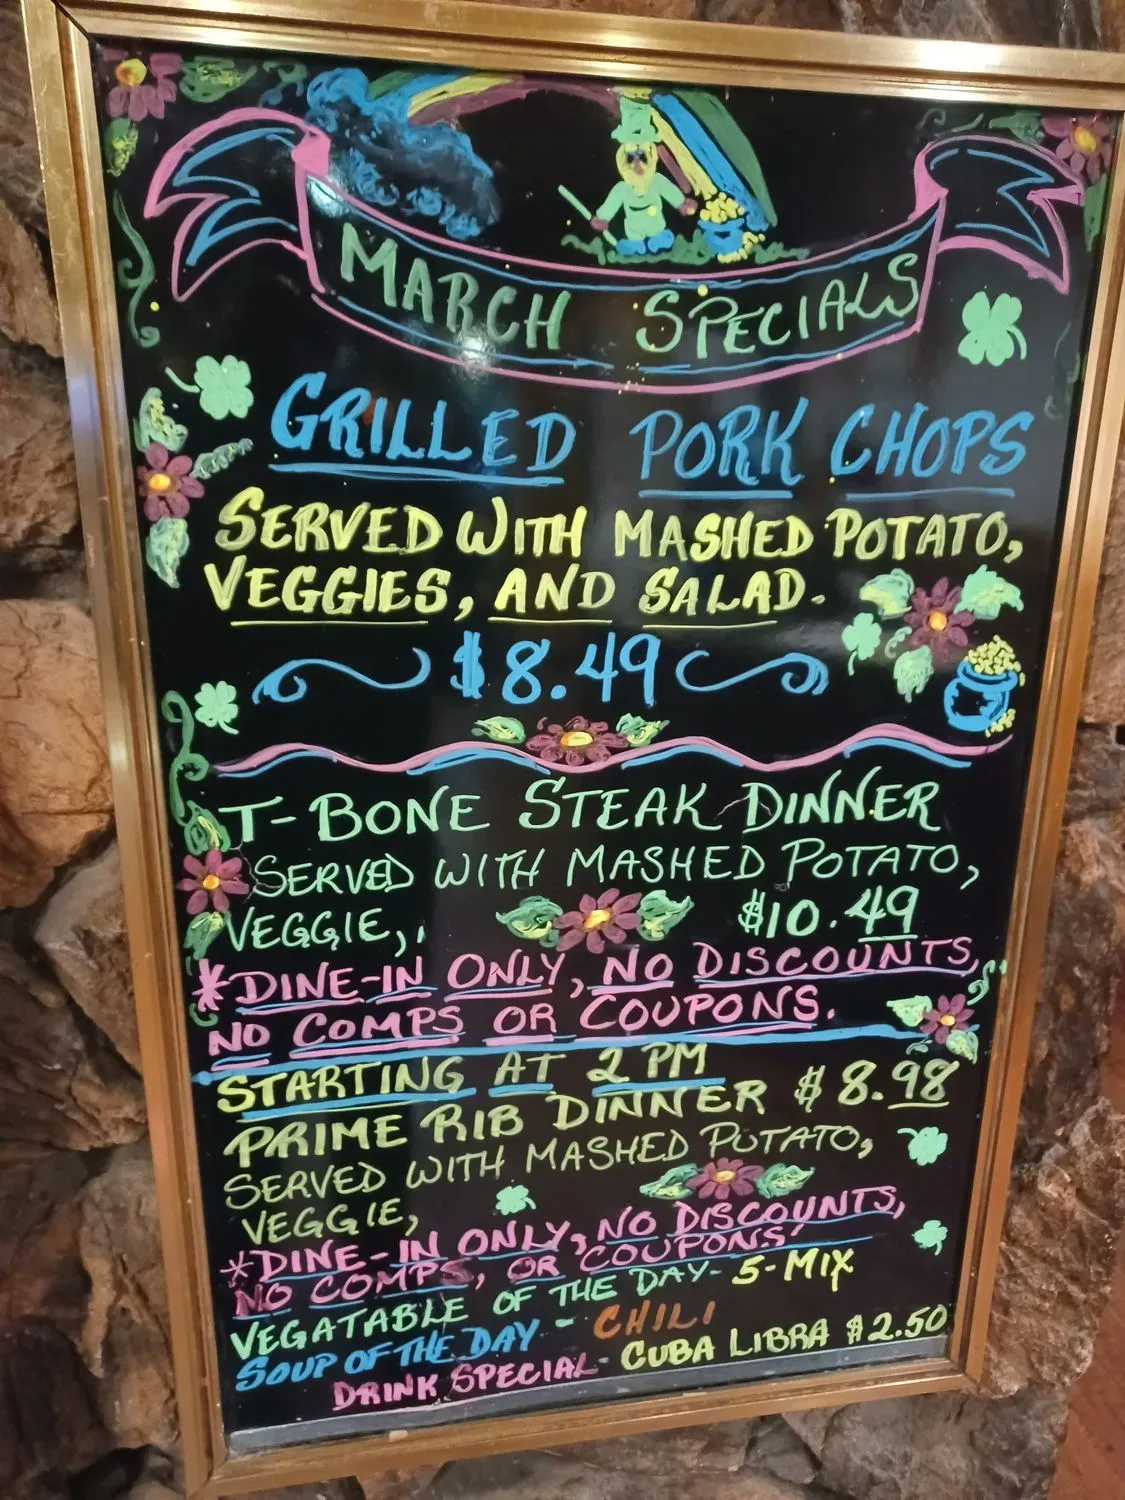 MARCH SPECIALS
GRILLED PORK CHOPS
SERVED WITH MASHED POTATO,
VEGGIES, AND SALAD.
$8.49
T-BONE STEAK DINNER
SERVED WITH MASHED POTATO,
VEGGIE, $10.49
*DINE-IN ONLY, NO DISCOUNTS,
NO COMPS OR COUPONS.
STARTING AT 2 PM
PRIME RIB DINNER $8.98
SERVED WITH MASHED POTATO,
VEGGIE,
*DINE-IN ONLY, NO DISCOUNTS,
NO COMPS, OR COUPONS!
VEGATABLE OF THE DAY- 5-MIX
SOUP OF THE DAY - CHILI
DRINK SPECIAL- CUBA LIBRA $2.50